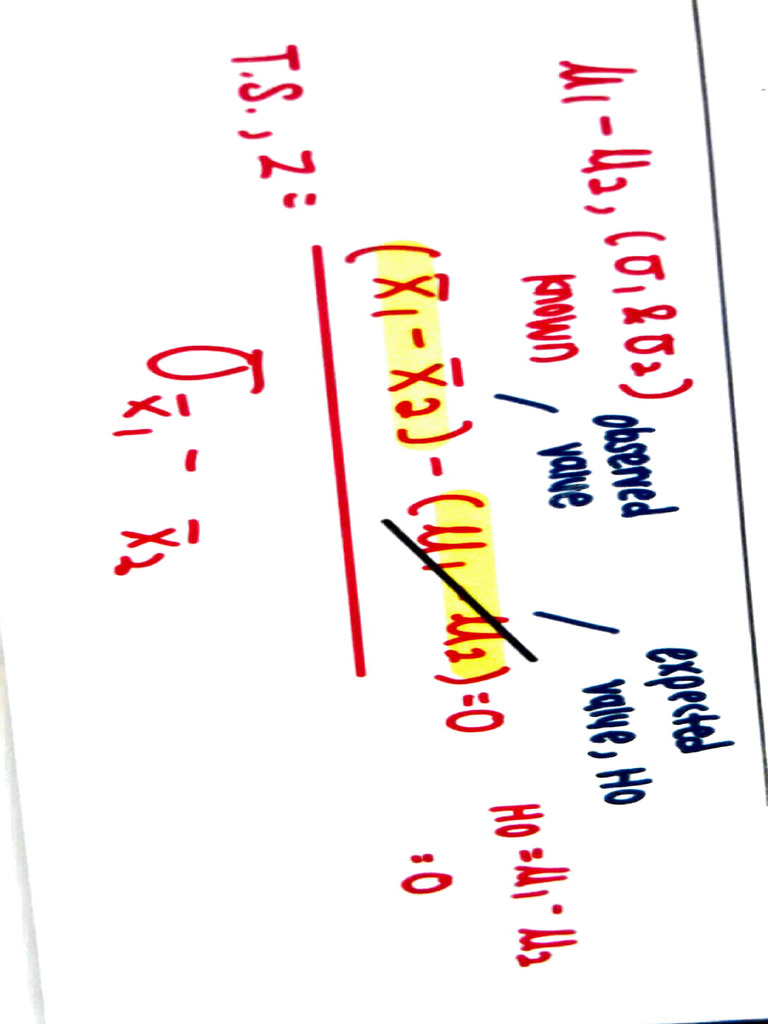 μ₁ - μ₂, (σ₁ & σ₂)
known
observed
value
expected
value, H0
T.S., Z =
(x̄₁ - x̄₂) - (μ₁ - μ₂) = 0
σ x̄₁ - x̄₂
H0 = μ₁ - μ₂
= 0